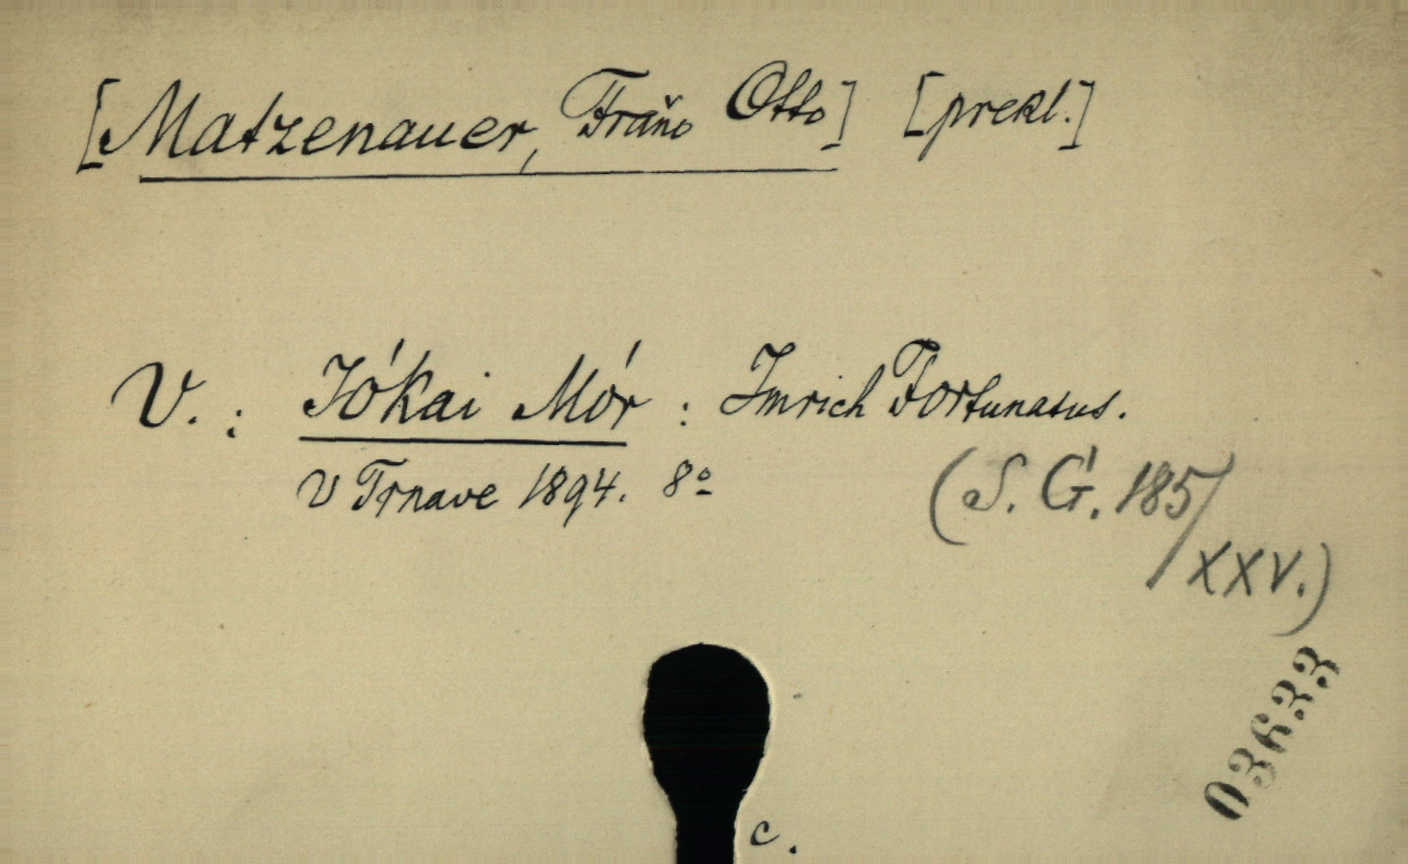 [Matzenauer, Fraňo Otto] [prekl.]
V. : Jókai Mór : Imrich Fortunatus.
V Trnave 1894. 8º
(S. G. 185/
XXV.)
03633
c.